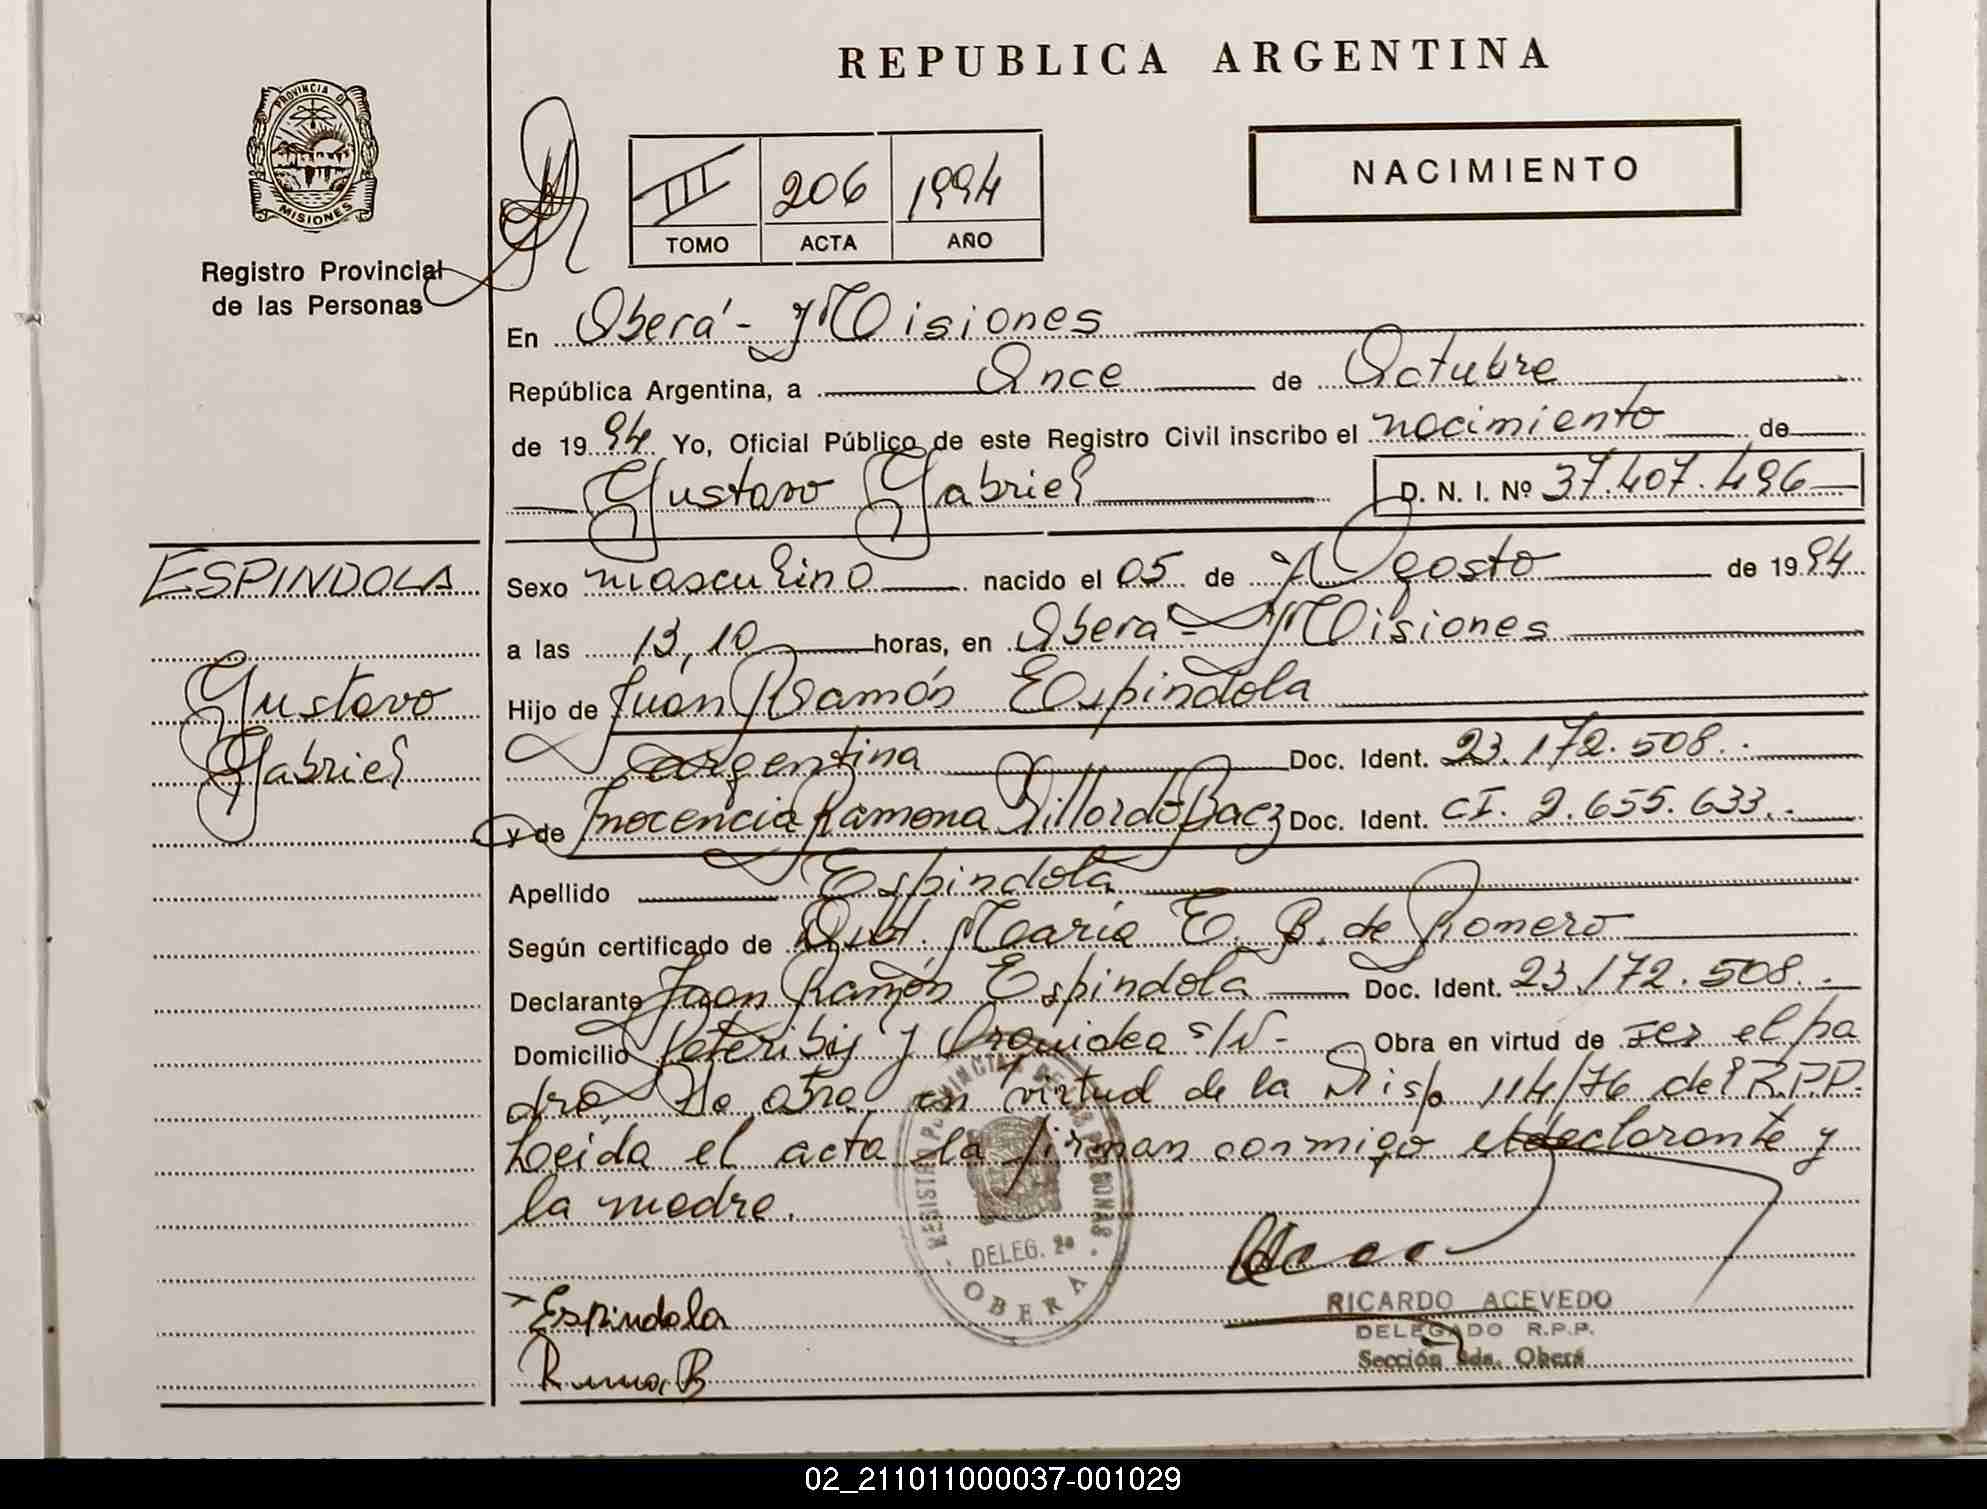 REPUBLICA ARGENTINA
PROVINCIA DE
MISIONES
Registro Provincial
de las Personas
III 206 1994
TOMO ACTA AÑO
NACIMIENTO
En Oberá - Misiones
República Argentina, a Once de Octubre
de 1994 Yo, Oficial Público de este Registro Civil inscribo el nacimiento de
Gustavo Gabriel D. N. I. Nº 37.407.496
ESPINDOLA
Gustavo
Gabriel
Sexo masculino nacido el 05 de Agosto de 1994
a las 13,10 horas, en Oberá - Misiones
Hijo de Juan Ramón Espindola
argentina Doc. Ident. 23.172.508.
y de Inocencia Ramona Baez Doc. Ident. CI. 2.655.633.
Apellido Espindola
Según certificado de Obst. María E. B. de Romero
Declarante Juan Ramón Espindola Doc. Ident. 23.172.508.
Domicilio y Orquidea s/N - Obra en virtud de ser el pa
dre. No obra en virtud de la Disp 114/76 del R.P.P.
Leida el acta la firman conmigo el declarante y
la madre.
REGISTRO PROVINCIAL DE LAS PERSONAS
DELEG. 2a
OBERA
Espindola
RICARDO ACEVEDO
DELEGADO R.P.P.
Sección 2da. Oberá
02_211011000037-001029